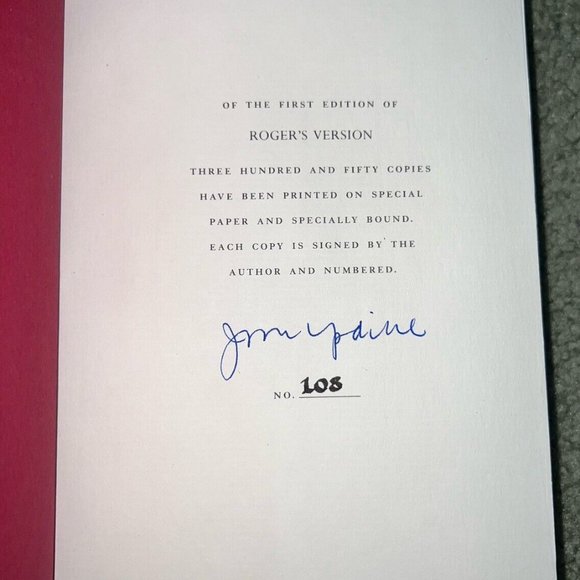 OF THE FIRST EDITION OF
ROGER'S VERSION
THREE HUNDRED AND FIFTY COPIES
HAVE BEEN PRINTED ON SPECIAL
PAPER AND SPECIALLY BOUND.
EACH COPY IS SIGNED BY THE
AUTHOR AND NUMBERED.
John Updike
NO. 108